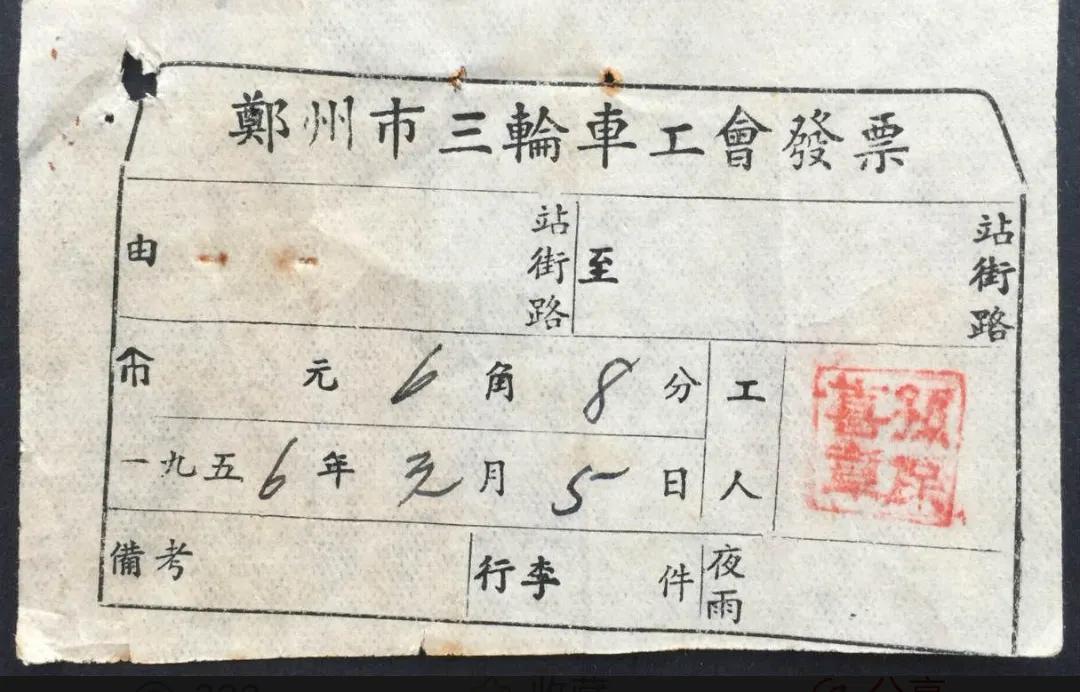 鄭州市三輪車工會發票
由 站街路 至 站街路
元 6 角 8 分 工人
一九五6年 元月 5日
備考 行李 件 夜雨